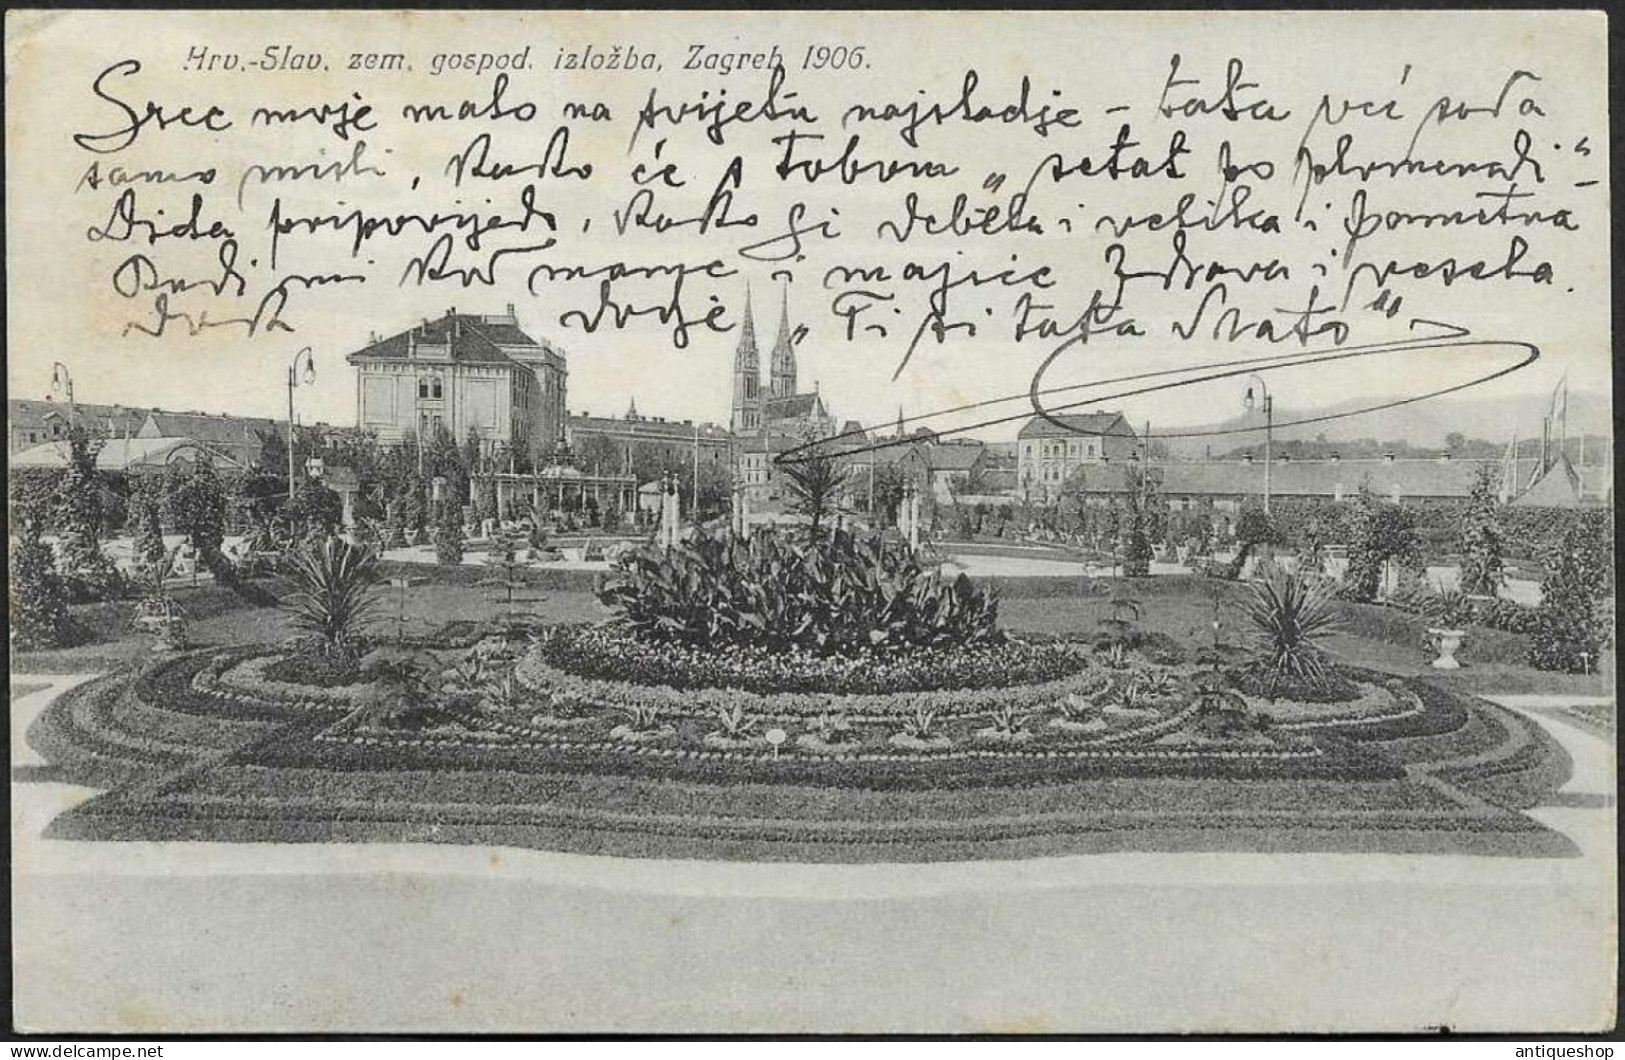 Hrv.-Slav. zem. gospod. izložba, Zagreb 1906.
Srce moje malo na svijetu najsladje - tata već sada
samo misli, kako će s tobom „setat po plomenadi“ -
Dida pripovijeda, kako si debela i velika i pametna
Budi mi kod mame i majice zdrava i vesela.
dok dodje „Ti si tata Vlato“
antiqueshop